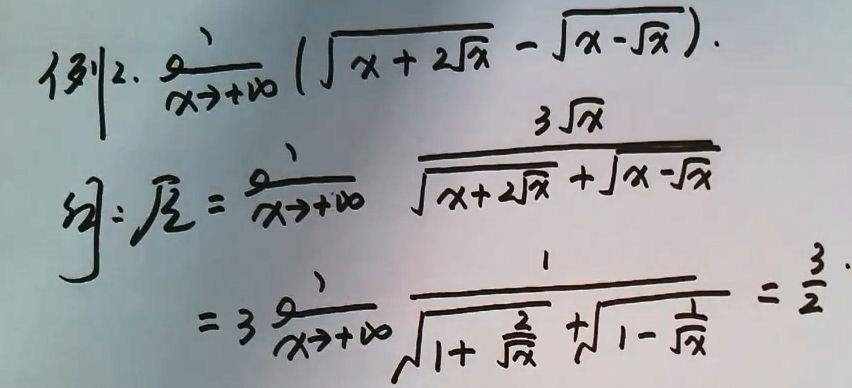 例2. lim x→+∞ (√(x + 2√x) - √(x - √x)).
解: 原 = lim x→+∞ 3√x / (√(x + 2√x) + √(x - √x))
= 3 lim x→+∞ 1 / (√(1 + 2/√x) + √(1 - 1/√x)) = 3/2.